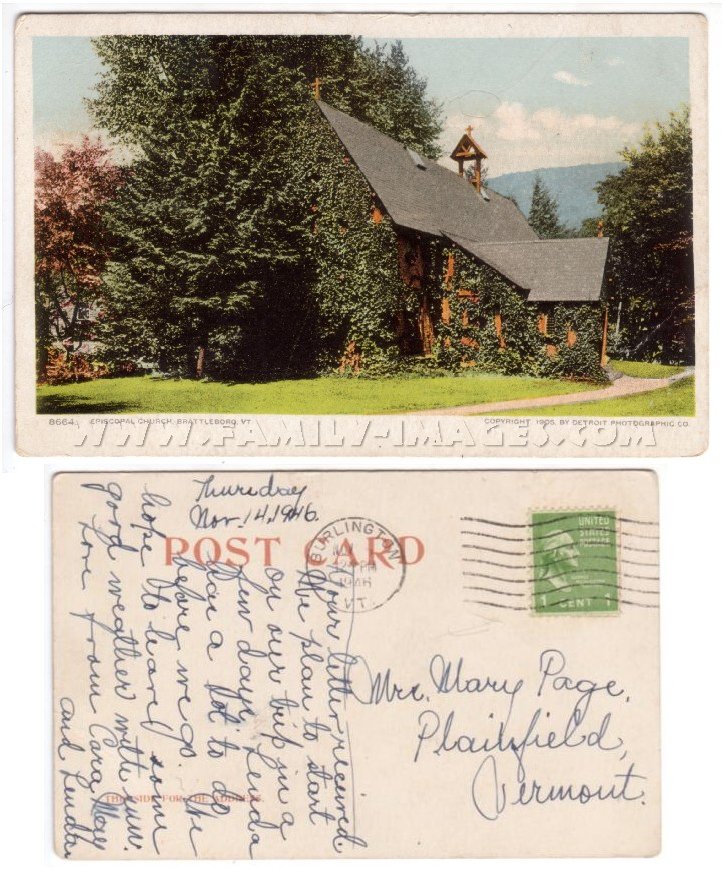 8664. EPISCOPAL CHURCH, BRATTLEBORO, VT.
COPYRIGHT, 1905, BY DETROIT PHOTOGRAPHIC CO.
WWW.FAMILY-IMAGES.COM
Thursday
Nov. 14, 1946.
POST CARD
BURLINGTON
1946
VT.
UNITED
STATES
POSTAGE
1 CENT 1
Your letter received.
We plan to start
on our trip in a
few days.
has a lot to do
before we go. We
hope to have some
good weather with us.
Love from Cora May
and
Mrs. Mary Page,
Plainfield,
Vermont.
THIS SIDE FOR THE ADDRESS.